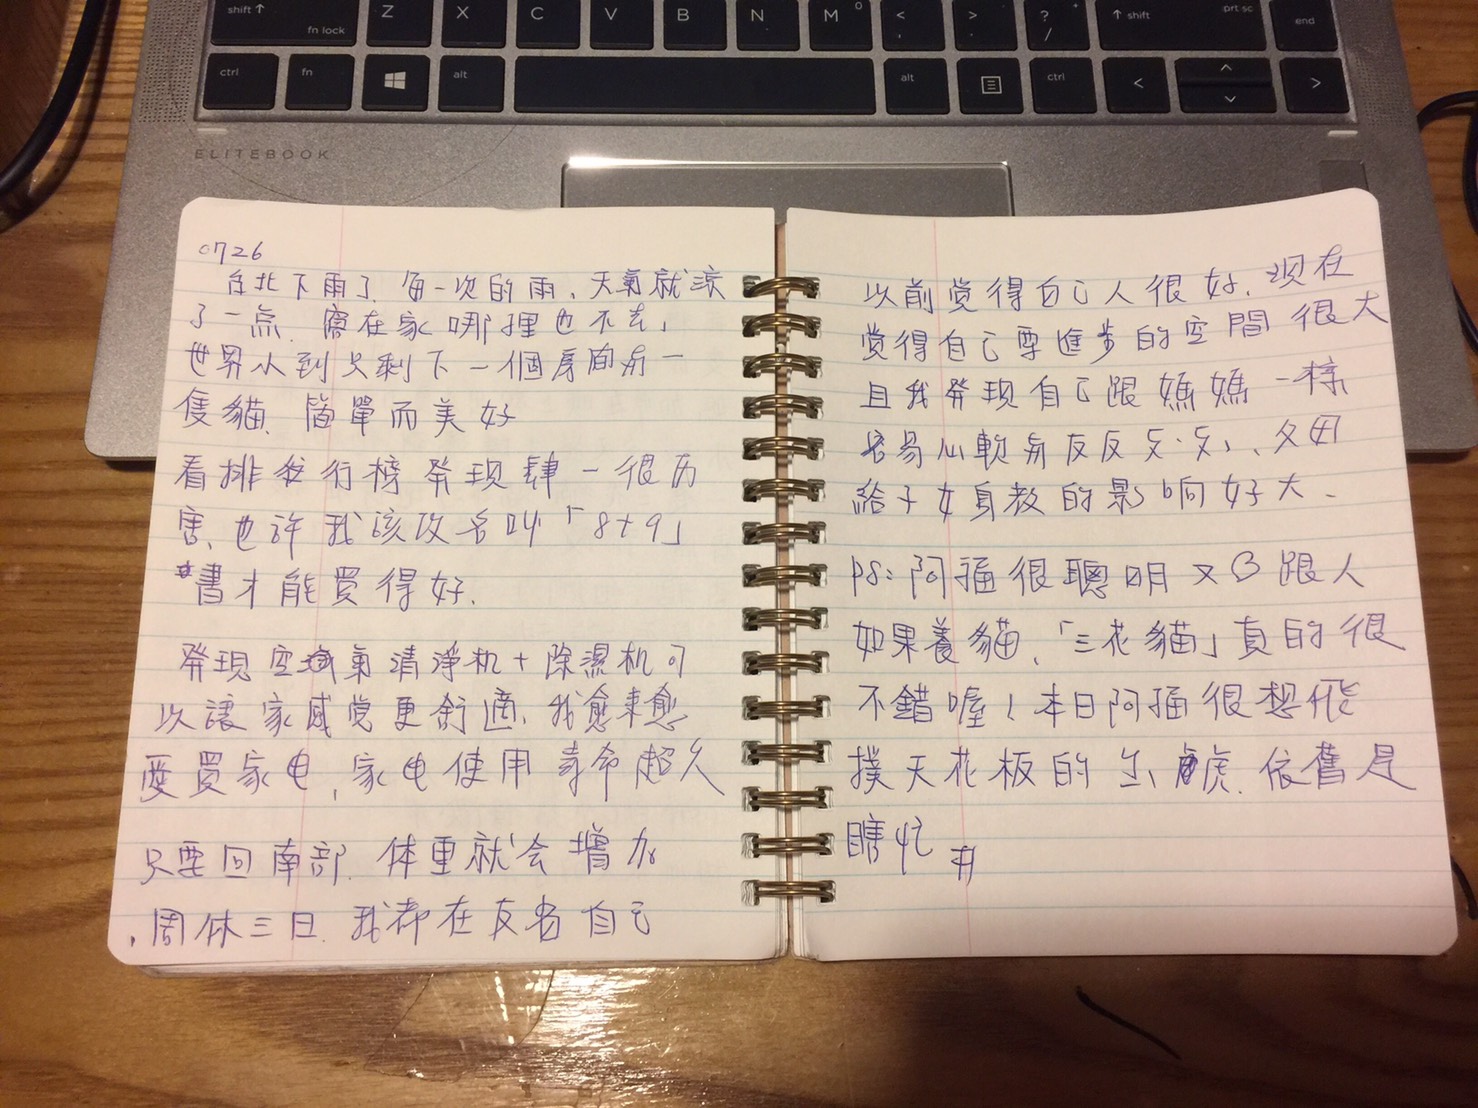 shift ↑
fn lock
Z X C V B N M
< ,
> .
? /
↑ shift
prt sc
end
ctrl
fn
alt
alt
ctrl
<
>
ELITEBOOK
0726
台北下雨了、每一次的雨、天氣就涼
了一点、窩在家哪裡也不去,
世界小到只剩下一個房間與一
隻貓、簡單而美好
看排行榜發現肆一很历
害、也許我該改名叫「8+9」
書才能賣得好、
發現空氣清淨机+除濕机可
以讓家感覚更舒適、我愈來愈
愛買家电、家电使用寿命超久
只要回南部、体重就会增加
、周休三日、我都在反省自己
以前覚得自己人很好、現在
覚得自己要進步的空間很大
且我發現自己跟媽媽一樣
容易心軟與反反反反、父母
給子女身教的影响好大、
PS:阿福很聰明又ㄋ跟人
如果養貓、「三花貓」真的很
不錯喔!本日阿福很想飛
撲天花板的壁虎、依舊是
瞎忙 #